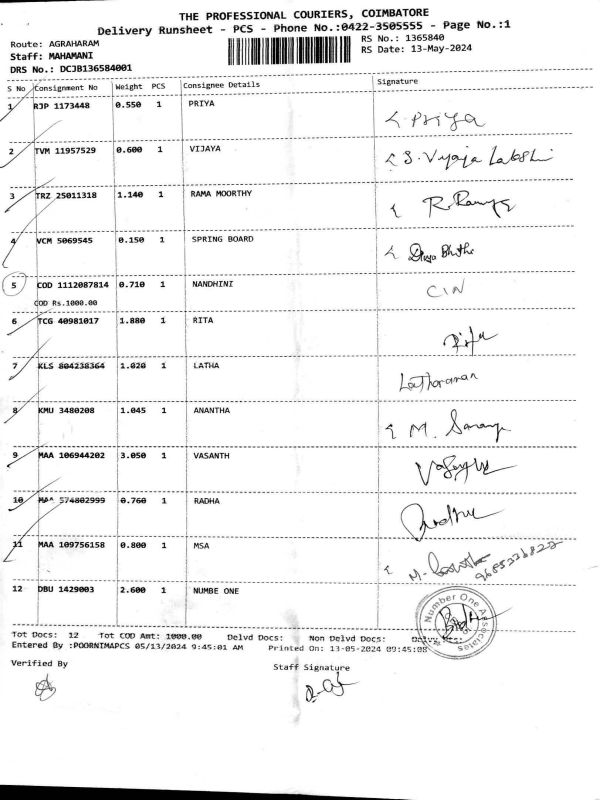 THE PROFESSIONAL COURIERS, COIMBATORE
Delivery Runsheet - PCS - Phone No.:0422-3505555 - Page No.:1
Route: AGRAHARAM RS No.: 1365840
Staff: MAHAMANI RS Date: 13-May-2024
DRS No.: DCJB136584001
S No Consignment No Weight PCS Consignee Details Signature
1 RJP 1173448 0.550 1 PRIYA Priya
2 TVM 11957529 0.600 1 VIJAYA S. Vijaya Lakshmi
3 TRZ 25011318 1.140 1 RAMA MOORTHY
4 VCM 5069545 0.150 1 SPRING BOARD
5 COD 1112087814 0.710 1 NANDHINI CIN
COD Rs.1000.00
6 TCG 40981017 1.880 1 RITA Rita
7 KLS 804238364 1.020 1 LATHA
8 KMU 3480208 1.045 1 ANANTHA
9 MAA 106944202 3.050 1 VASANTH
10 MAA 574802999 0.760 1 RADHA
11 MAA 109756158 0.800 1 MSA
12 DBU 1429003 2.600 1 NUMBE ONE Number One Associates
Tot Docs: 12 Tot COD Amt: 1000.00 Delvd Docs: Non Delvd Docs:
Entered By :POORNIMAPCS 05/13/2024 9:45:01 AM Printed On: 13-05-2024 09:45:08
Verified By Staff Signature